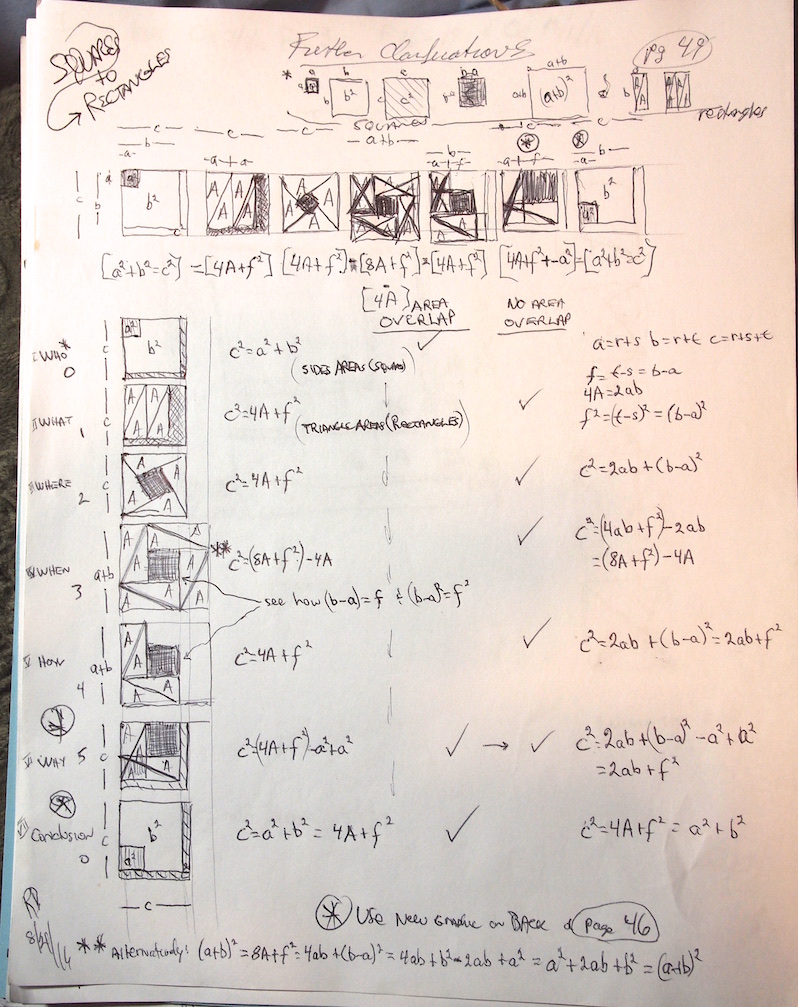 SQUARES TO RECTANGLES
Further Clarifications
pg 49
* a b c b-a a+b
a a² b b² c c² (a+b)² a+b & b A A A A
SQUARES rectangles
c c c c c
b a+b b b
a a a f a f a
c b a² b² c² A A A A A A A A A A A A A A a² b²
[a²+b²=c²] = [4A+f²] [4A+f²] = [8A+f²] = [4A+f²] [4A+f²+-a²] = [a²+b²=c²]
[4A] AREA OVERLAP
NO AREA OVERLAP
I WHO * 0 c a² b² c²=a²+b² (SIDES AREAS (SQUARES) ✓
a=r+s b=r+t c=r+s+t
f=t-s=b-a
4A=2ab
f²=(t-s)²=(b-a)²
II WHAT 1 c A A A A c²=4A+f² (TRIANGLE AREAS (RECTANGLES) ✓
III WHERE 2 c A A A A c²=4A+f² ✓ c²=2ab+(b-a)²
IV WHEN 3 a+b A A A A A A ** c²=(8A+f²)-4A ✓ c²=(4ab+f²)-2ab
=(8A+f²)-4A
see how (b-a)=f & (b-a)²=f²
V HOW 4 a+b A A A A c²=4A+f² ✓ c²=2ab+(b-a)²=2ab+f²
VI WAY 5 c A A A c²=(4A+f²)-a²+a² ✓ → ✓ c²=2ab+(b-a)²-a²+a²
=2ab+f²
Conclusion 0 c b² a² c²=a²+b²=4A+f² ✓ c²=4A+f²=a²+b²
c
* USE NEW GRAPHIC ON BACK of page 46
** Alternatively: (a+b)²=8A+f²=4ab+(b-a)²=4ab+b²-2ab+a²=a²+2ab+b²=(a+b)²